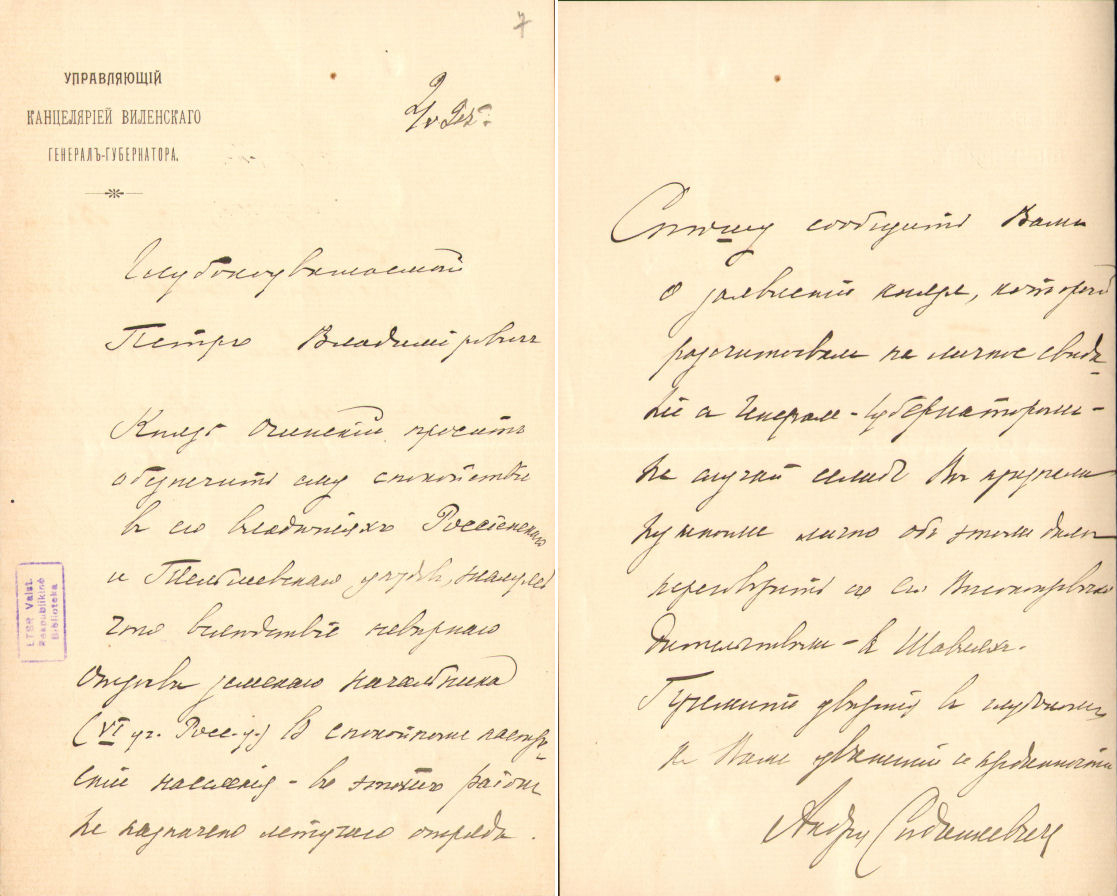 7
УПРАВЛЯЮЩІЙ
КАНЦЕЛЯРІЕЙ ВИЛЕНСКАГО
ГЕНЕРАЛЪ-ГУБЕРНАТОРА.
Глубокоуважаемый
Петръ Владиміровичъ
Князь Огинскій проситъ
обезпечить ему спокойствіе
въ его владѣніяхъ Россіенскаго
и Тельшевскаго уѣздовъ,
что вслѣдствіе невѣрнаго
земскаго начальника
(VI уч. Росс. у.) въ спокойномъ настрое-
ніи населенія - въ этомъ районѣ
не назначено летучаго отряда.
LTSR Valst.
Respublikinė
Biblioteka
Спѣшу сообщить Вамъ
о заявленіи князя, который
разсчитывалъ на личное свида-
ніе съ Генералъ-Губернаторомъ -
на случай если бъ Вы
лично объ этомъ дѣлѣ
переговорить съ его Высокопревосхо-
дительствомъ - въ Шавляхъ.
Примите увѣреніе въ глубокомъ
къ Вамъ уваженіи и преданности